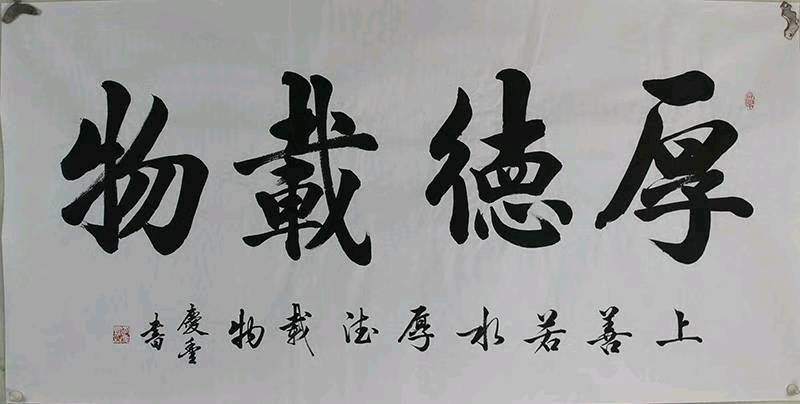 厚德載物
上善若水厚德載物
慶重書